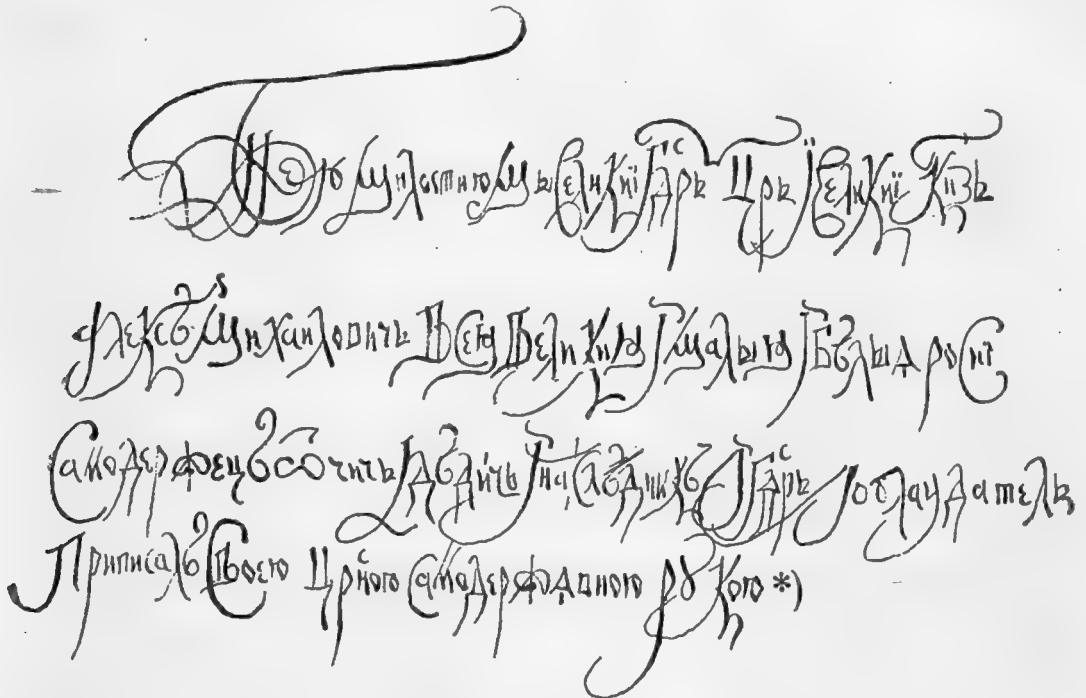 Бжиею Милостию Мы великиї Гдрь Црь Ї великиї Кнзь
Алексѣй Михаиловичь Всеа Великиꙗ Ї Малыꙗ Ї Бѣлыꙗ Росиї
Самодержецъ Отчичь Ї Дѣдичь Ї наслѣдникъ Ї Гдрь Ї обладатель
Приписалъ Своею Црскою Самодержавною рꙋкою *)